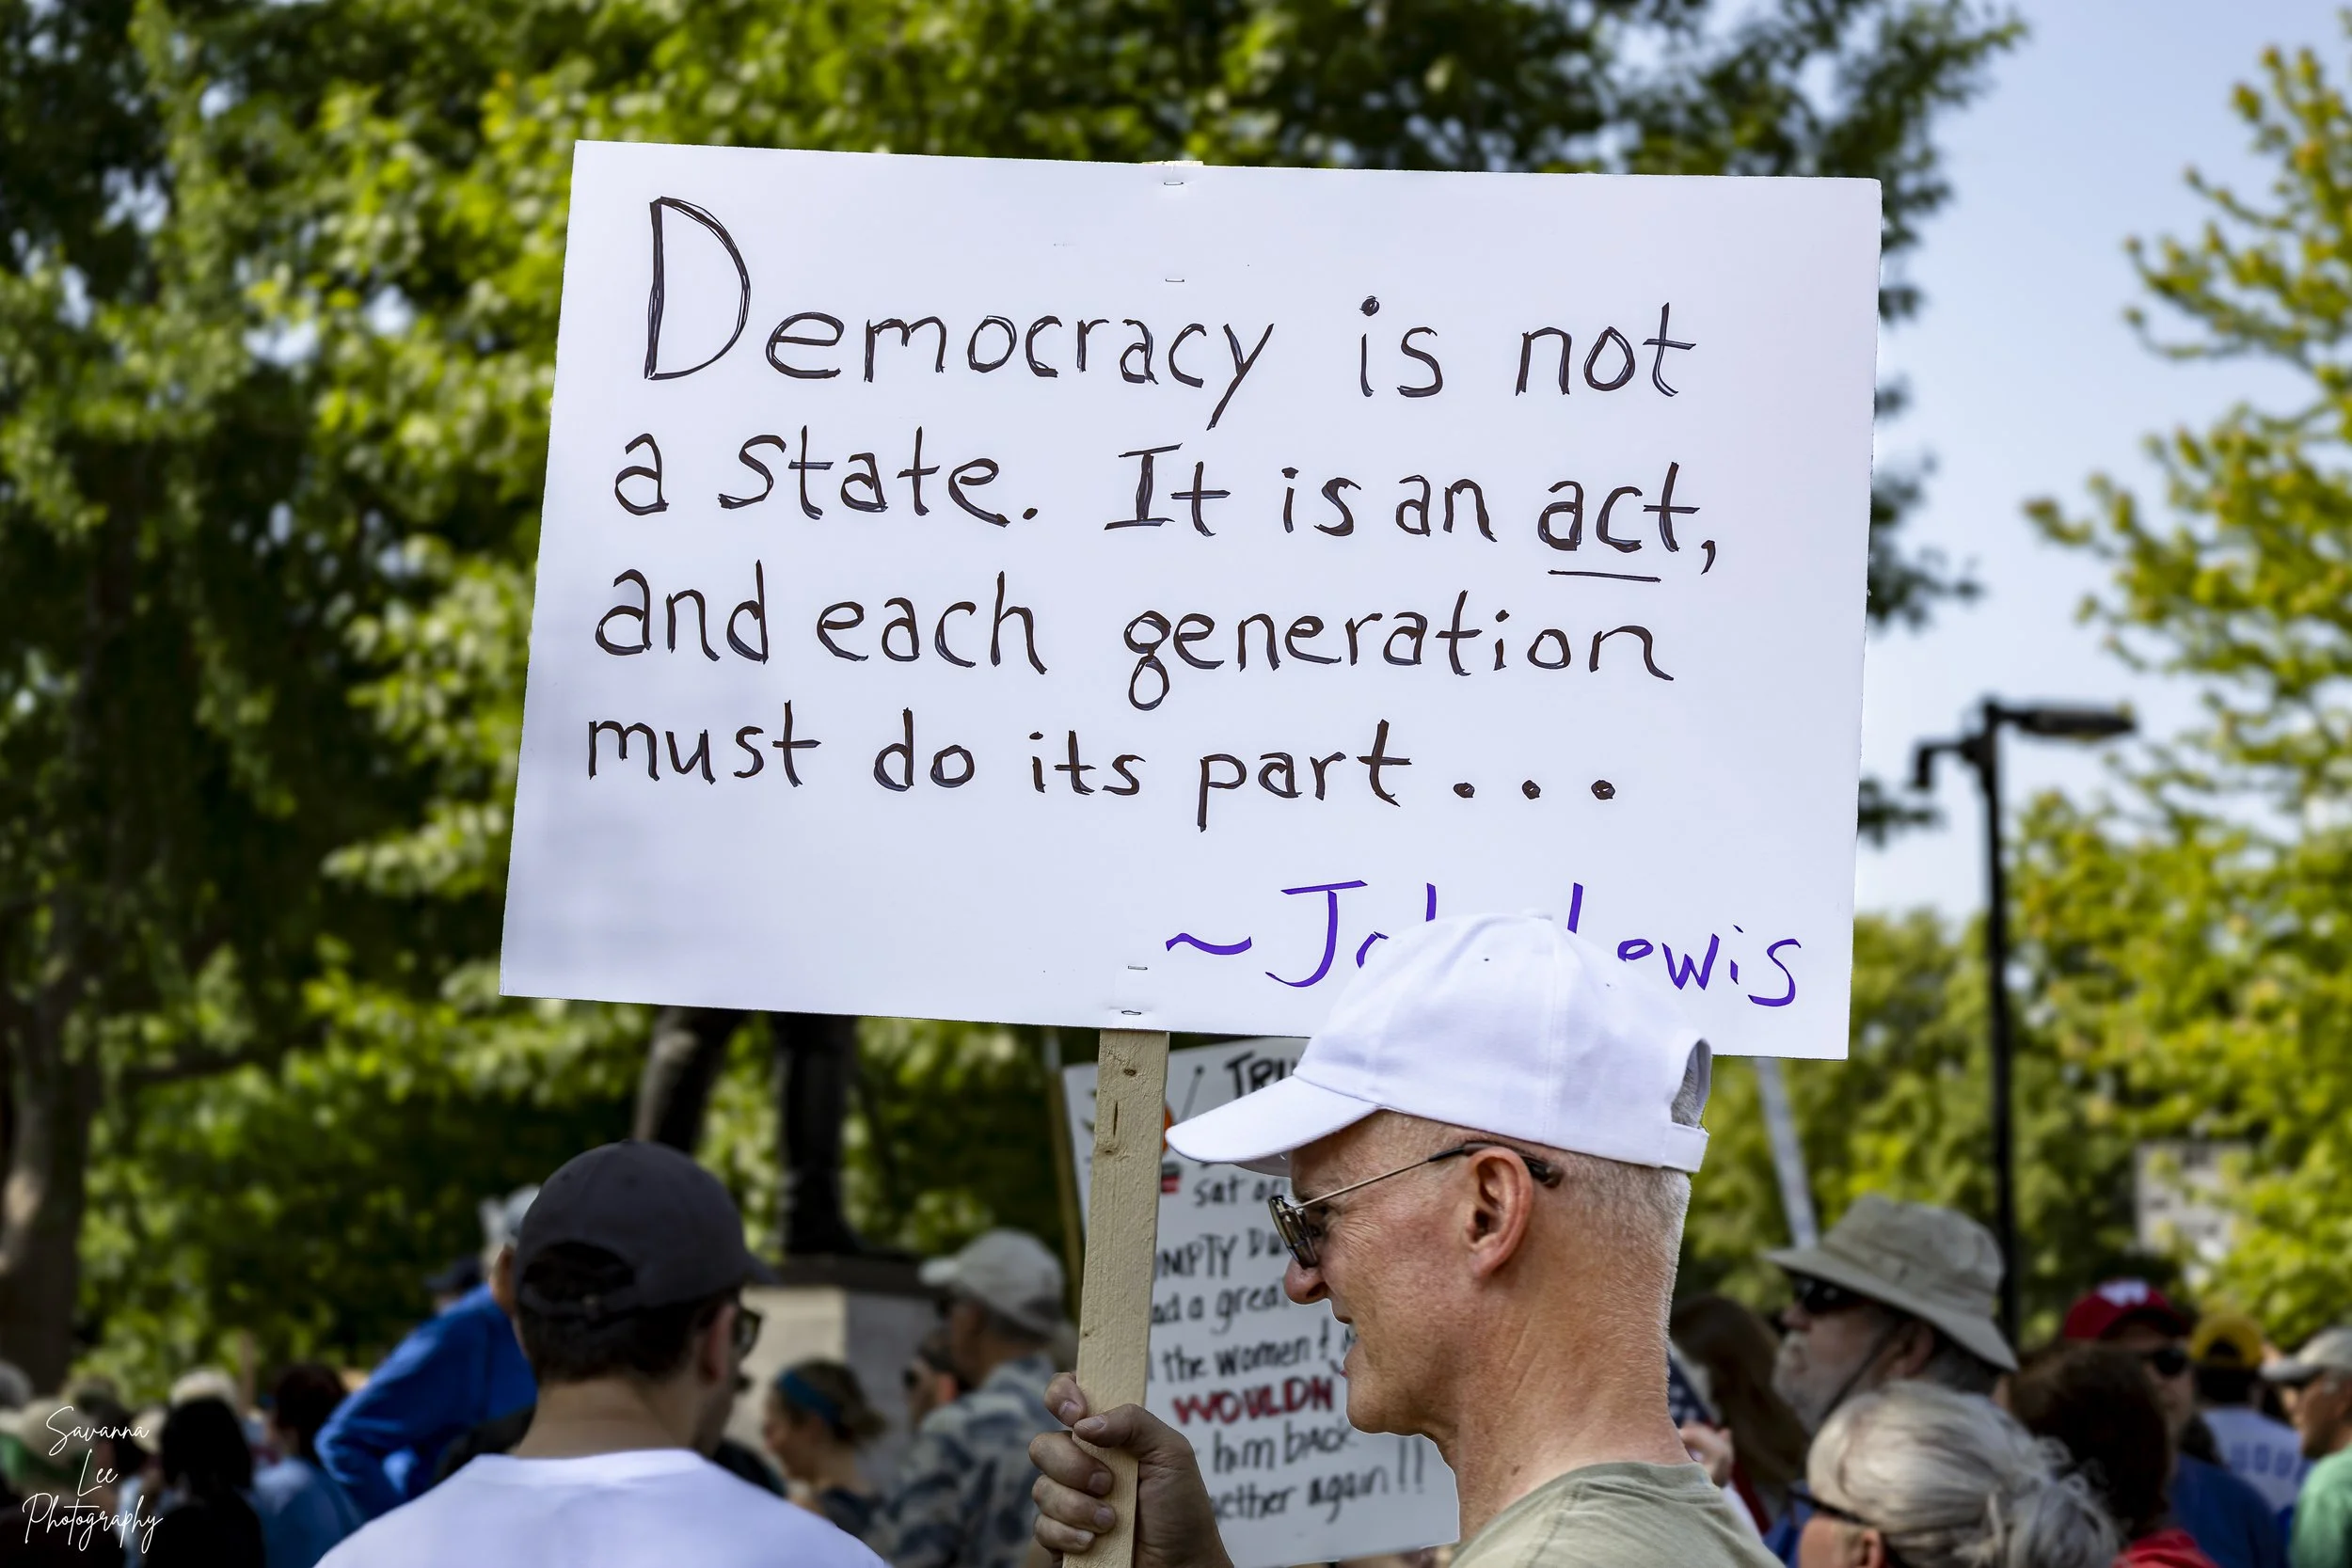 Democracy is not
a state. It is an act,
and each generation
must do its part...
~ John Lewis
sat
had a great
the women &
WOULDN
him back
together again!!
Savanna
Lee
Photography